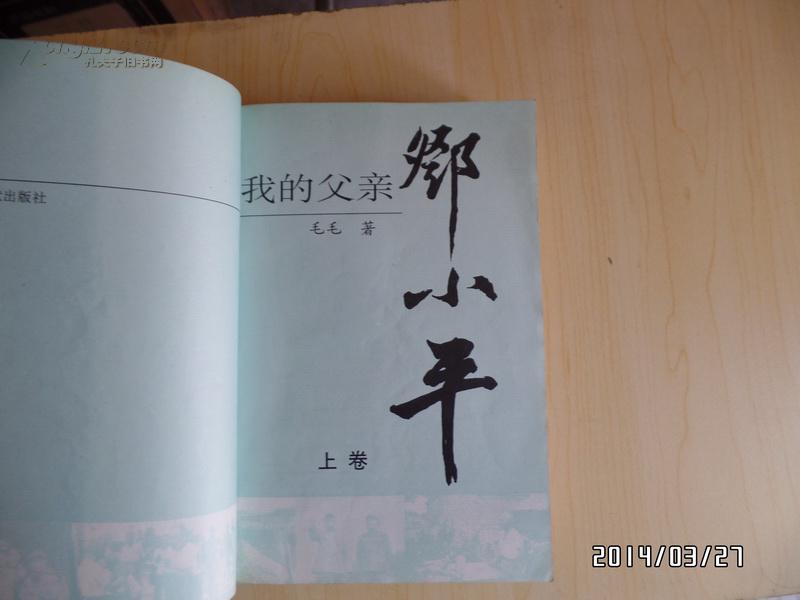 孔夫子旧书网
出版社
我的父亲
邓小平
毛毛 著
上卷
2014/03/27